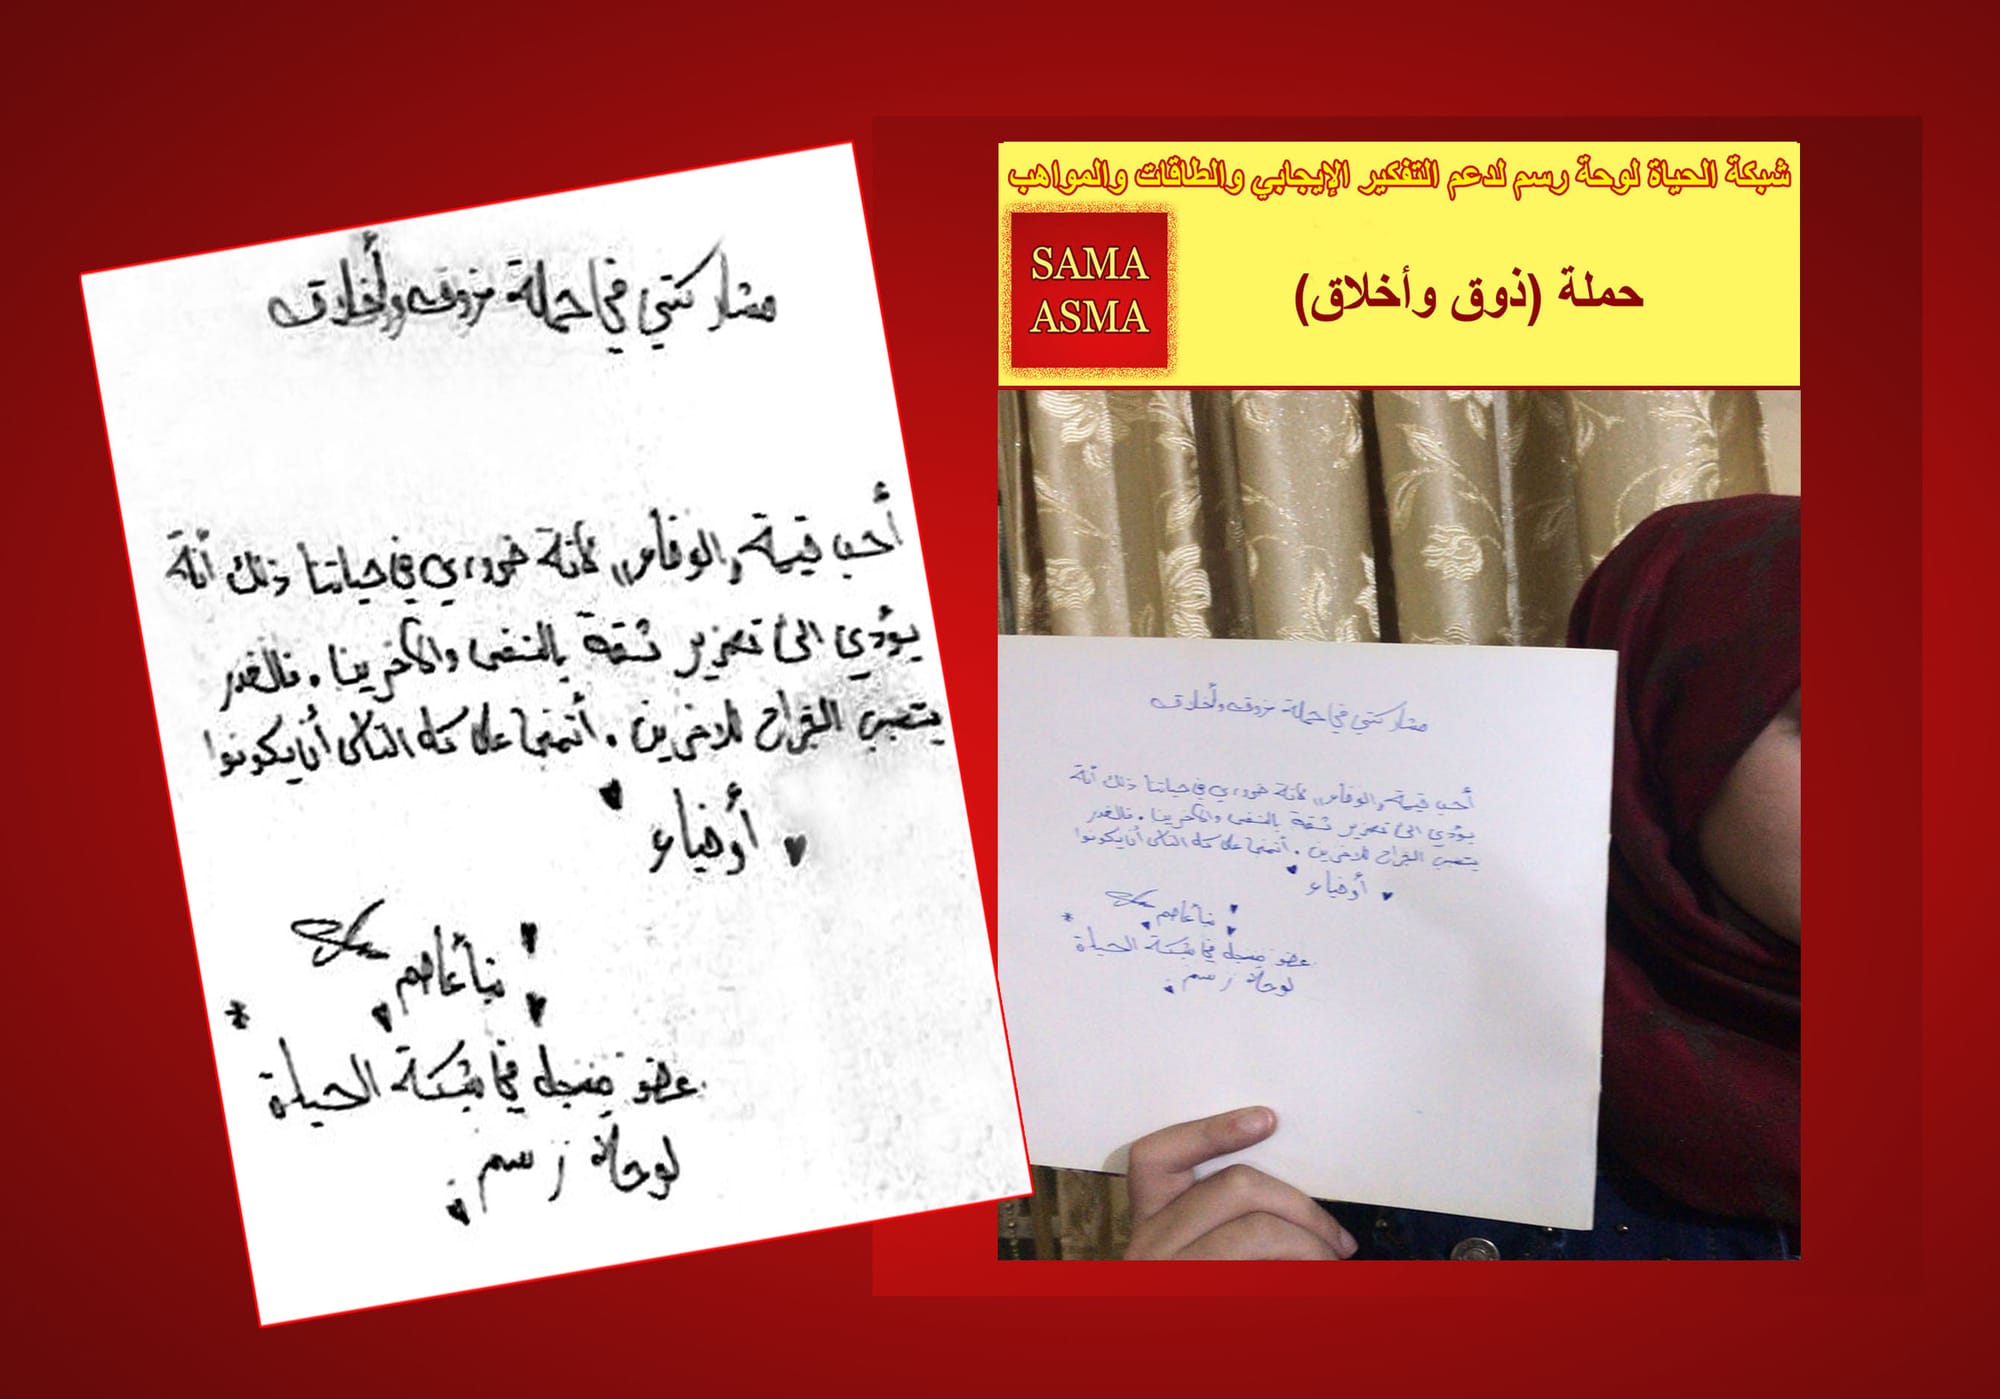 شبكة الحياة لوحة رسم لدعم التفكير الإيجابي والطاقات والمواهب
SAMA
ASMA
حملة (ذوق وأخلاق)
مشاركتي في حملة ذوق وأخلاق
أحب قيمة "الوفاء" لأنة ضروري في حياتنا ذلك أنة
يؤدي الى تعزيز ثقة بالنفس والآخرين. فالغدر
يتسبب الجراح للاخرين. أتمنى على كل الناس أن يكونوا
أوفياء
عاصم
عضو مسجل في شبكة الحياة
لوحة رسم
مشاركتي في حملة ذوق وأخلاق
أحب قيمة "الوفاء" لأنة ضروري في حياتنا ذلك أنة
يؤدي الى تعزيز ثقة بالنفس والآخرين. فالغدر
يتسبب الجراح للاخرين. أتمنى على كل الناس أن يكونوا
أوفياء
عاصم
عضو مسجل في شبكة الحياة
لوحة رسم